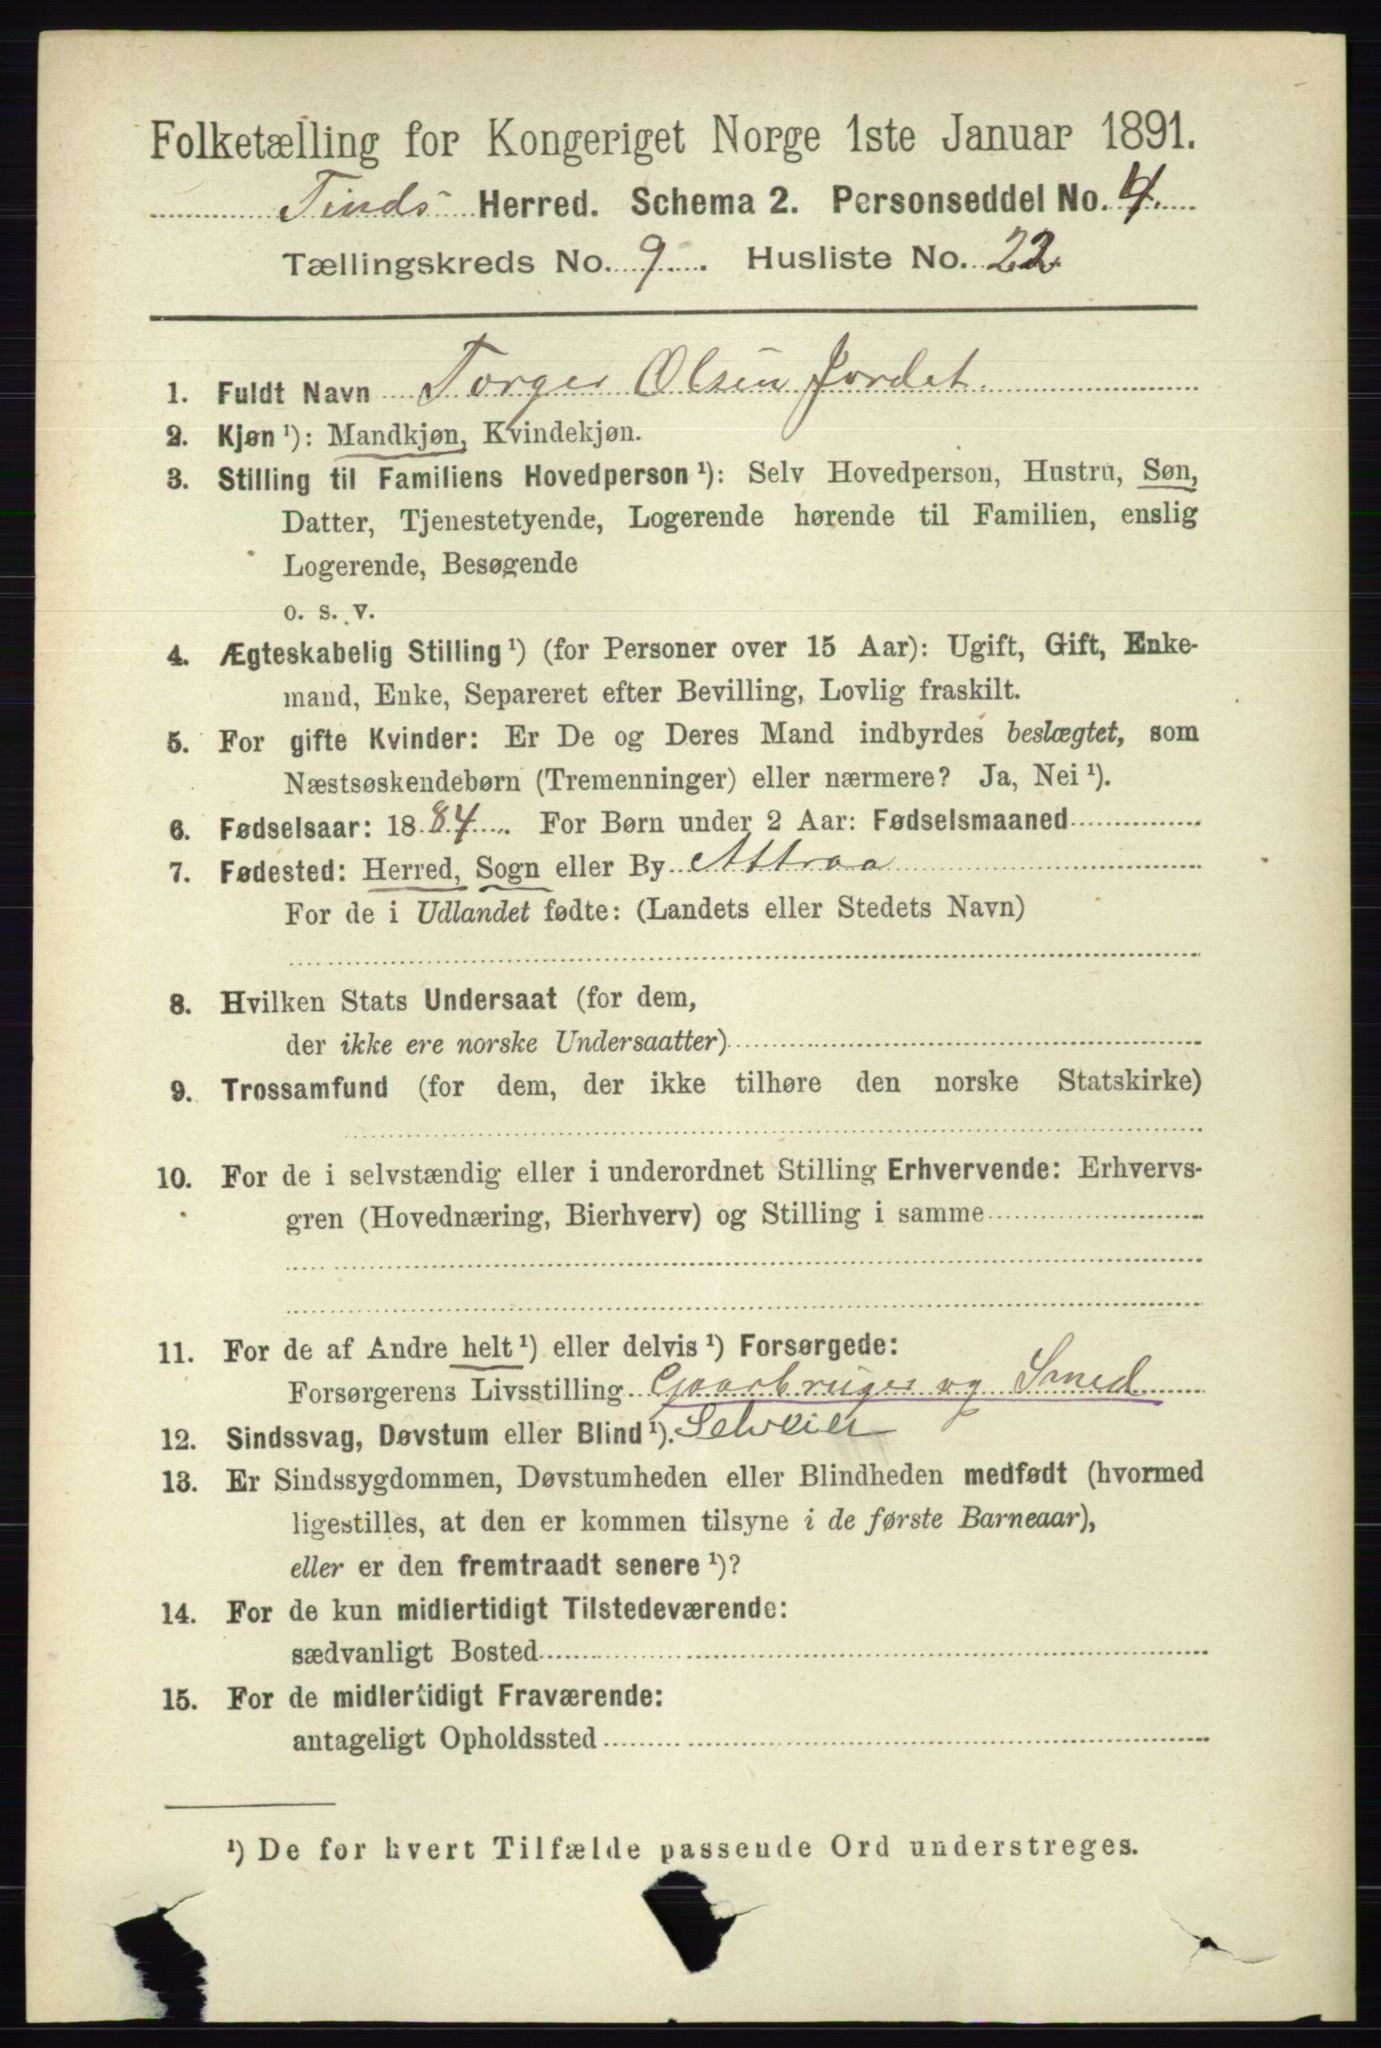 Folketælling for Kongeriget Norge 1ste Januar 1891.
Tinds Herred. Schema 2. Personseddel No. 4.
Tællingskreds No. 9. Husliste No. 22
1. Fuldt Navn Torger Olsen Jordet.
2. Kjøn ¹): Mandkjøn, Kvindekjøn.
3. Stilling til Familiens Hovedperson ¹): Selv Hovedperson, Hustru, Søn,
Datter, Tjenestetyende, Logerende hørende til Familien, enslig
Logerende, Besøgende
o. s. v.
4. Ægteskabelig Stilling ¹) (for Personer over 15 Aar): Ugift, Gift, Enke-
mand, Enke, Separeret efter Bevilling, Lovlig fraskilt.
5. For gifte Kvinder: Er De og Deres Mand indbyrdes beslægtet, som
Næstsøskendebørn (Tremenninger) eller nærmere? Ja, Nei ¹).
6. Fødselsaar: 1884. For Børn under 2 Aar: Fødselsmaaned
7. Fødested: Herred, Sogn eller By Attraa
For de i Udlandet fødte: (Landets eller Stedets Navn)
8. Hvilken Stats Undersaat (for dem,
der ikke ere norske Undersaatter)
9. Trossamfund (for dem, der ikke tilhøre den norske Statskirke)
10. For de i selvstændig eller i underordnet Stilling Erhvervende: Erhvervs-
gren (Hovednæring, Bierhverv) og Stilling i samme
11. For de af Andre helt ¹) eller delvis ¹) Forsørgede:
Forsørgerens Livsstilling Gaarbruger og Smed
12. Sindssvag, Døvstum eller Blind ¹). Selveier
13. Er Sindssygdommen, Døvstumheden eller Blindheden medfødt (hvormed
ligestilles, at den er kommen tilsyne i de første Barneaar),
eller er den fremtraadt senere ¹)?
14. For de kun midlertidigt Tilstedeværende:
sædvanligt Bosted
15. For de midlertidigt Fraværende:
antageligt Opholdssted
¹) De for hvert Tilfælde passende Ord understreges.